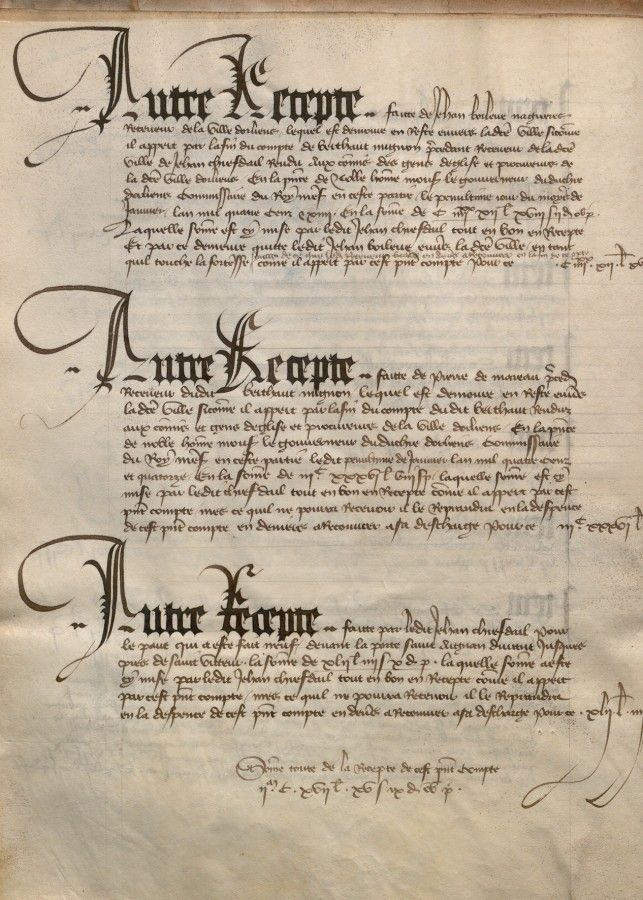 Autre Recepte faitte de Jehan boileve nagueres
Receveur de la ville dorliens lequel est demoure en Reste envers la dce ville sicome
il appert par la fin du compte de berthaut mignon precedant Receveur de la dce
ville de Jehan chiefdail Rendu aux comis des gens deglise et procureurs de
la dce ville dorliens En la pnce de noble home mons le gouverneur du duche
dorliens Commissaire du Roy nre en ceste partie le penultime jour du moys de
Janvier lan mil quatre Cens Et xiiii En la some de C
Laquelle some est cy mise par ledit Jehan chiefdail tout en bon en Recepte
Et par ce demeure quitte ledit Jehan boileve envers la dce ville en tant
quil touche la forteresse come il appert par cest pnt compte Pour ce
Autre Recepte faitte de Pierre de moreau
Receveur dudit berthaut mignon lequel est demoure en Reste envers
la dce ville sicome il appert par la fin du compte dudit berthaut Rendu
aux comis et gens deglise et procureurs de la ville dorliens En la pnce
de noble home mons le gouverneur du duche dorliens Commissaire
du Roy nre en ceste partie ledit penultime de Janvier lan mil quatre Cens
et quatorze En la some de iii c xxxvi l laquelle some est cy
mise par ledit chiefdail tout en bon en Recepte come il appert par cest
pnt compte mes ce quil ne poura Recevoir il le Reprandra en la despence
de cest pnt compte en deniers a Recouvrer a sa descharge Pour ce iii c xxxvi l
Autre Recepte faitte par ledit Jehan chiefdail Pour
le pave qui a este fait neuf devant la porte saint Aignan Jusques
pres de saint la some de xlii l iiii s x d p laquelle some
cy mise par ledit Jehan chiefdail tout en bon en Recepte come il appert
par cest pnt compte mes ce quil ne poura Recevoir il le Reprandra
en la despence de cest pnt compte en deniers a Recouvrer a sa descharge Pour ce xlii l iiii
Some toute de la Recepte de cest pnt Compte
ii m C xvii l xv s ix d p